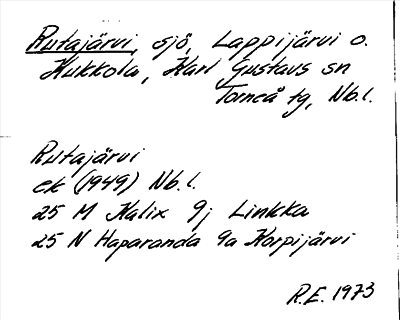 Rutajärvi, sjö, Lappijärvi o.
Kukkola, Karl Gustavs sn
Torneå tg, Nb.l.
Rutajärvi
ek (1949) Nb.l.
25 M Kalix 9j Linkka
25 N Haparanda 9a Korpijärvi
R.E. 1973